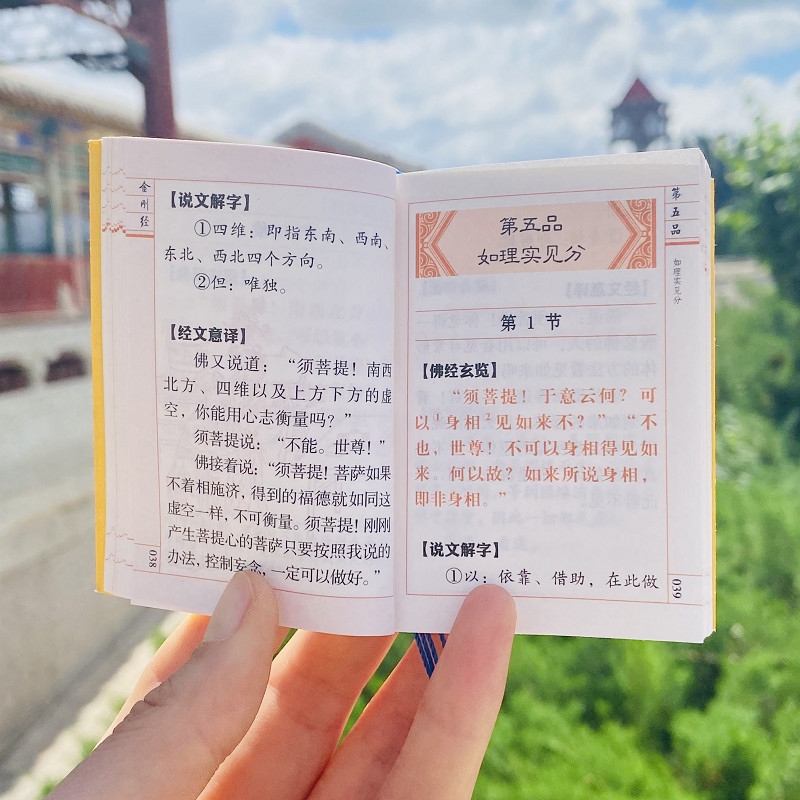 金刚经
【说文解字】
①四维：即指东南、西南、
东北、西北四个方向。
②但：唯独。
【经文意译】
佛又说道：“须菩提！南西
北方、四维以及上方下方的虚
空，你能用心志衡量吗？”
须菩提说：“不能。世尊！”
佛接着说：“须菩提！菩萨如果
不着相施济，得到的福德就如同这
虚空一样，不可衡量。须菩提！刚刚
产生菩提心的菩萨只要按照我说的
办法，控制妄念，一定可以做好。”
038
第五品
如理实见分
第五品
如理实见分
第1节
【佛经玄览】
“须菩提！于意云何？可
以①身相②见如来不？”“不
也，世尊！不可以身相得见如
来。何以故？如来所说身相，
即非身相。”
【说文解字】
①以：依靠、借助，在此做
039